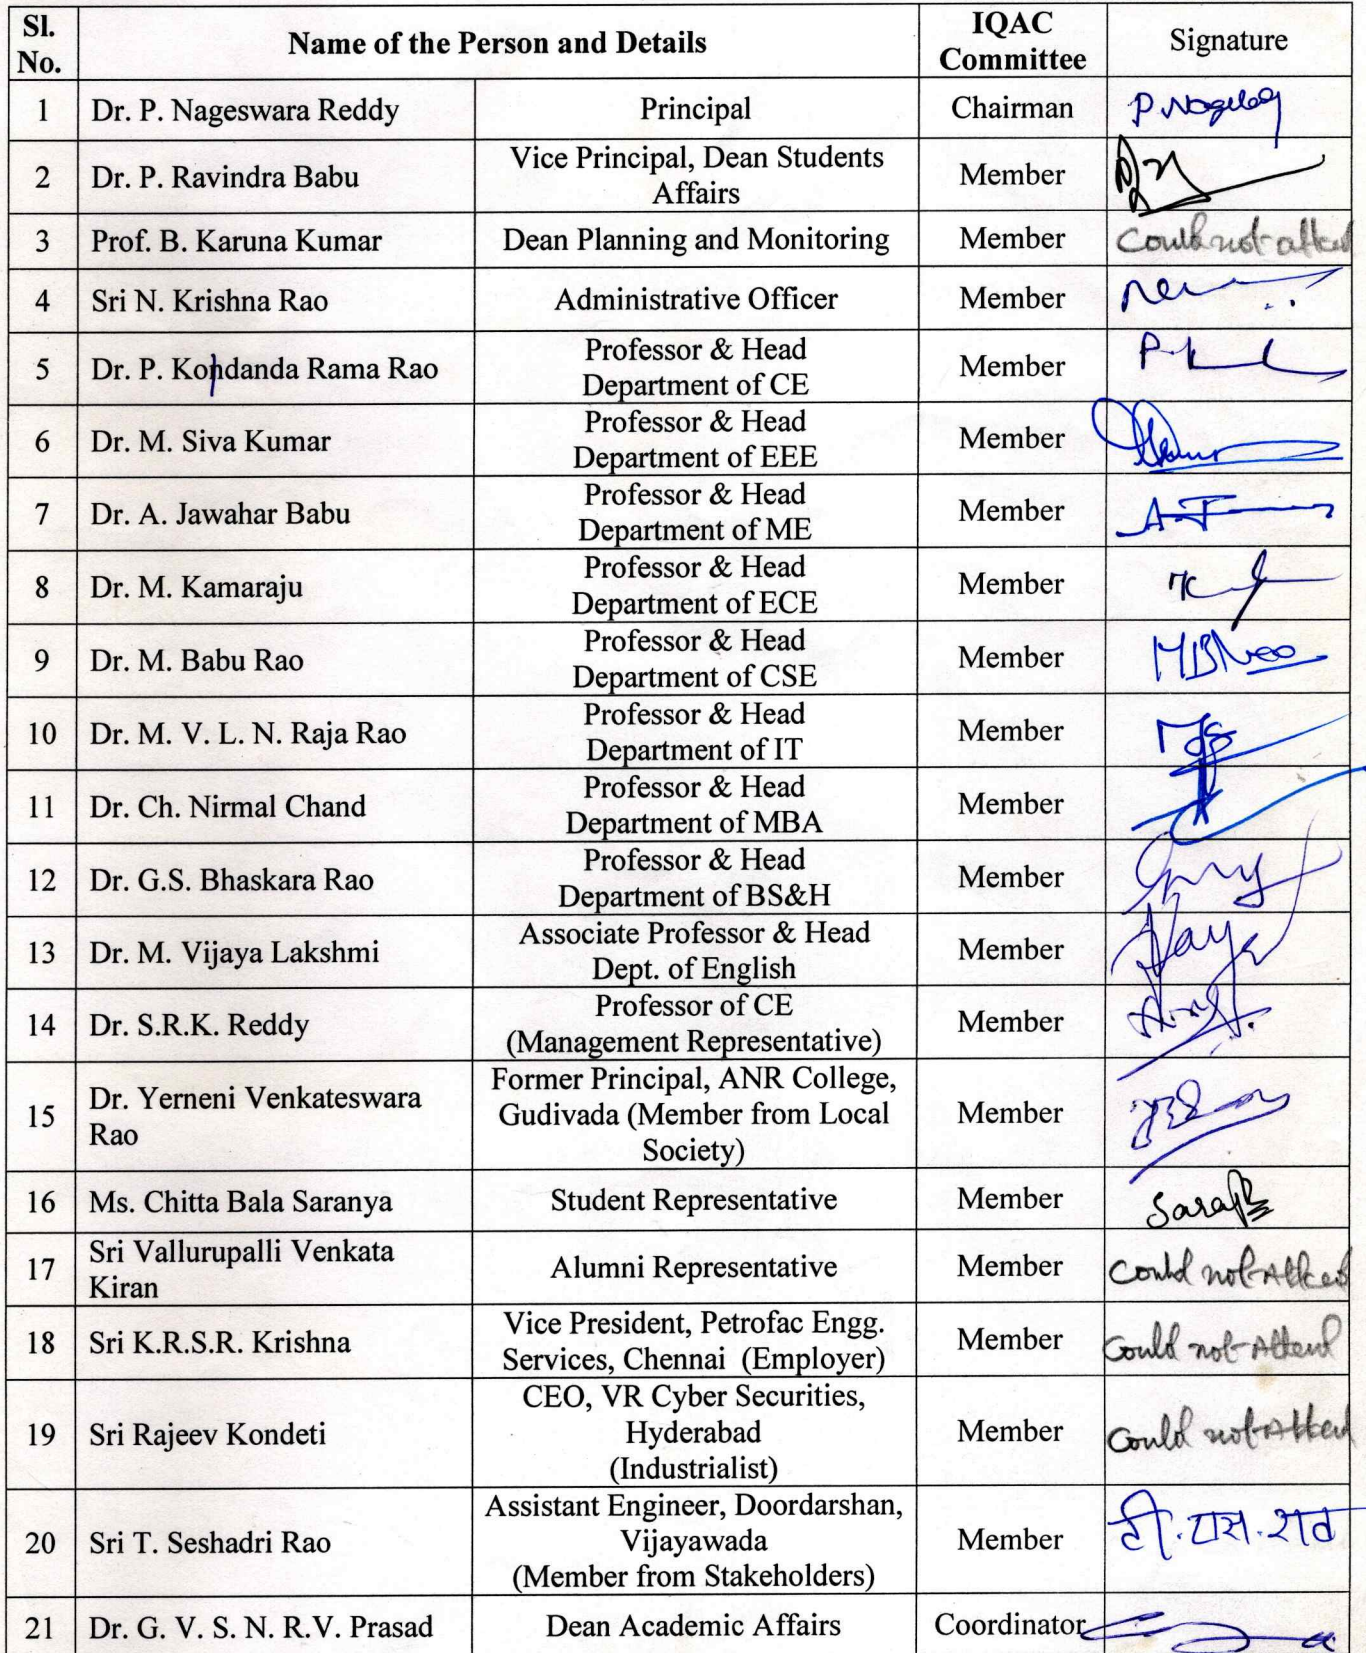 Sl. No. Name of the Person and Details IQAC Committee Signature
1 Dr. P. Nageswara Reddy Principal Chairman
2 Dr. P. Ravindra Babu Vice Principal, Dean Students Affairs Member
3 Prof. B. Karuna Kumar Dean Planning and Monitoring Member Could not attend
4 Sri N. Krishna Rao Administrative Officer Member
5 Dr. P. Kondanda Rama Rao Professor & Head Department of CE Member
6 Dr. M. Siva Kumar Professor & Head Department of EEE Member
7 Dr. A. Jawahar Babu Professor & Head Department of ME Member
8 Dr. M. Kamaraju Professor & Head Department of ECE Member
9 Dr. M. Babu Rao Professor & Head Department of CSE Member MBRao
10 Dr. M. V. L. N. Raja Rao Professor & Head Department of IT Member
11 Dr. Ch. Nirmal Chand Professor & Head Department of MBA Member
12 Dr. G.S. Bhaskara Rao Professor & Head Department of BS&H Member
13 Dr. M. Vijaya Lakshmi Associate Professor & Head Dept. of English Member
14 Dr. S.R.K. Reddy Professor of CE (Management Representative) Member
15 Dr. Yerneni Venkateswara Rao Former Principal, ANR College, Gudivada (Member from Local Society) Member
16 Ms. Chitta Bala Saranya Student Representative Member
17 Sri Vallurupalli Venkata Kiran Alumni Representative Member Could not Attend
18 Sri K.R.S.R. Krishna Vice President, Petrofac Engg. Services, Chennai (Employer) Member Could not Attend
19 Sri Rajeev Kondeti CEO, VR Cyber Securities, Hyderabad (Industrialist) Member Could not Attend
20 Sri T. Seshadri Rao Assistant Engineer, Doordarshan, Vijayawada (Member from Stakeholders) Member टी. एस. राव
21 Dr. G. V. S. N. R.V. Prasad Dean Academic Affairs Coordinator